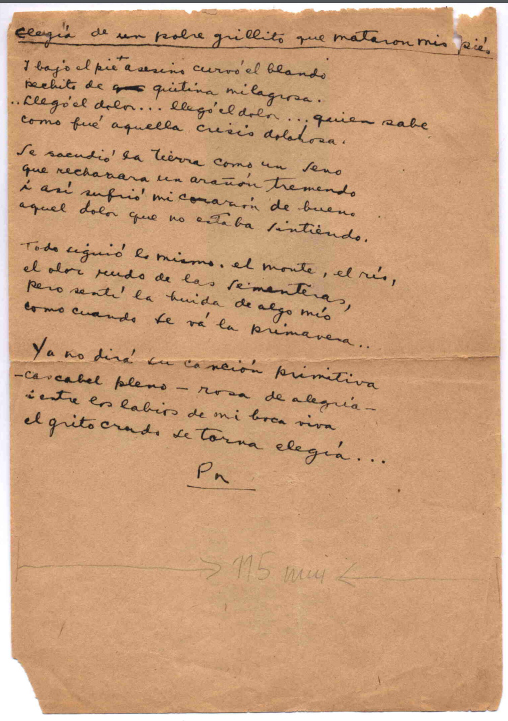 Elegía de un pobre grillito que mataron mis piés
I bajo el pie asesino curvó el blando
pechito de gütina milagrosa.
..Llegó el dolor... llegó el dolor... quien sabe
como fué aquella crisis dolorosa.
Se sacudió la Tierra como un seno
que rechazara un arañón tremendo
i así sufrió mi corazón de bueno
aquel dolor que no estaba sintiendo.
Todo siguió lo mismo. el monte, el río,
el olor rudo de las sementeras,
pero sentí la huida de algo mío
como cuando se vá la primavera..
Ya no dirá su canción primitiva
-cascabel pleno - rosa de alegría -
i entre los labios de mi boca viva
el grito crudo se torna elegía...
Pn
115 mm